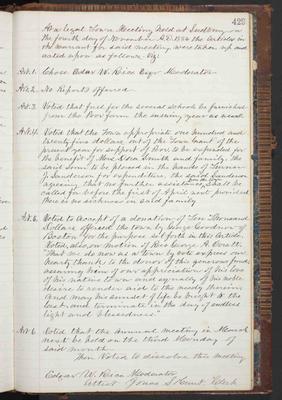 423
At a legal Town Meeting held at Sudbury on
the fourth day of November A.D. 1884 the articles in
the warrant for said meeting were taken up and
acted upon as follows Viz:
Art. 1. Chose Edgar W. Rice Esqr Moderator
Art. 2. No Reports offered
Art. 3. Voted that fuel for the several schools be furnished
from the Poor farm the ensuing year as usual
Art. 4. Voted that the Town appropriate one hundred and
twenty five dollars out of the Town Grant of the
present year for support of Poor to be expended for
the benefit of Mrs Dora Smith and family, the
said sum to be placed in the hands of
J. Sanderson for expenditure, the said Sanderson
agreeing that no further assistance shall be
called for before the first of April next provided
there is no sickness in said family
Art. 5. Voted to accept of a donation of Ten Thousand
Dollars offered the town by George Goodnow of
Boston for the purpose set forth in this Article.
Voted, also, on motion of Rice George A.
That we do now as a Town by vote express our
hearty thanks to the donor of this generous fund
assuring him of our appreciation of his love
of his native town and equally of his noble
desire to render aid to the needy therein
And may his sunset of life be bright to the
last and terminate in the day of endless
light and blessedness."
Art. 6 Voted that the annual meeting in March
next be held on the third Monday of
said month
Then Voted to dissolve this meeting
Edgar W. Rice Moderator
Attest Jonas S. Hunt Clerk